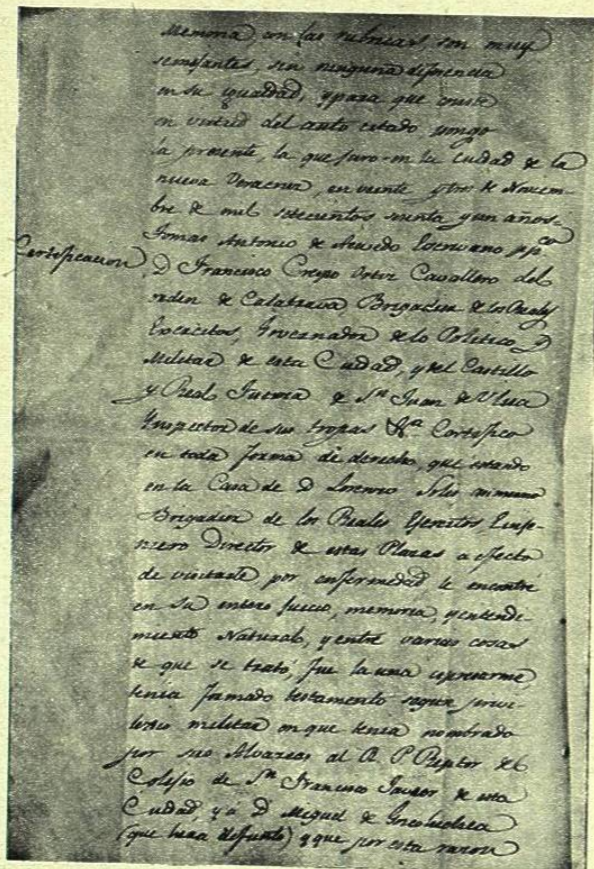 Memoria, con las rubricas, son muy
semejantes, sin ninguna diferencia
en su igualdad, y para que conste
en virtud del auto citado pongo
la presente, la que juro en la Ciudad de la
nueva Veracruz, en veinte y tres de Noviem-
bre de mil setecientos sesenta y un años.
Tomas Antonio de Acevedo Escrivano pp.co
Certificacion
D Francisco Crespo Ortiz Cavallero del
orden de Calatrava, Brigadier de los Reales
Exercitos, Governador de lo Politico, y
Militar de esta Ciudad, y del Castillo
y Real Fuerza de Sn Juan de Ulua
Inspector de sus tropas &a Certifico
en toda forma de derecho, que estando
en la Casa de D Lorenzo Solis
Brigadier de los Reales Exercitos, Enje-
niero Director de estas Plazas a efecto
de visitarle, por enfermedad le encontré
en su entero juicio, memoria, y entendi-
miento Natural, y entre varias cosas
de que se trató, fue la una expresarme,
tenia formado testamento segun privi-
legio militar en que tenia nombrado
por sus Alvaceas al R. P. Rector del
Colejio de Sn Francisco Javier de esta
Ciudad, y á D Miguel de
(que hera difunto) y que por esta razon